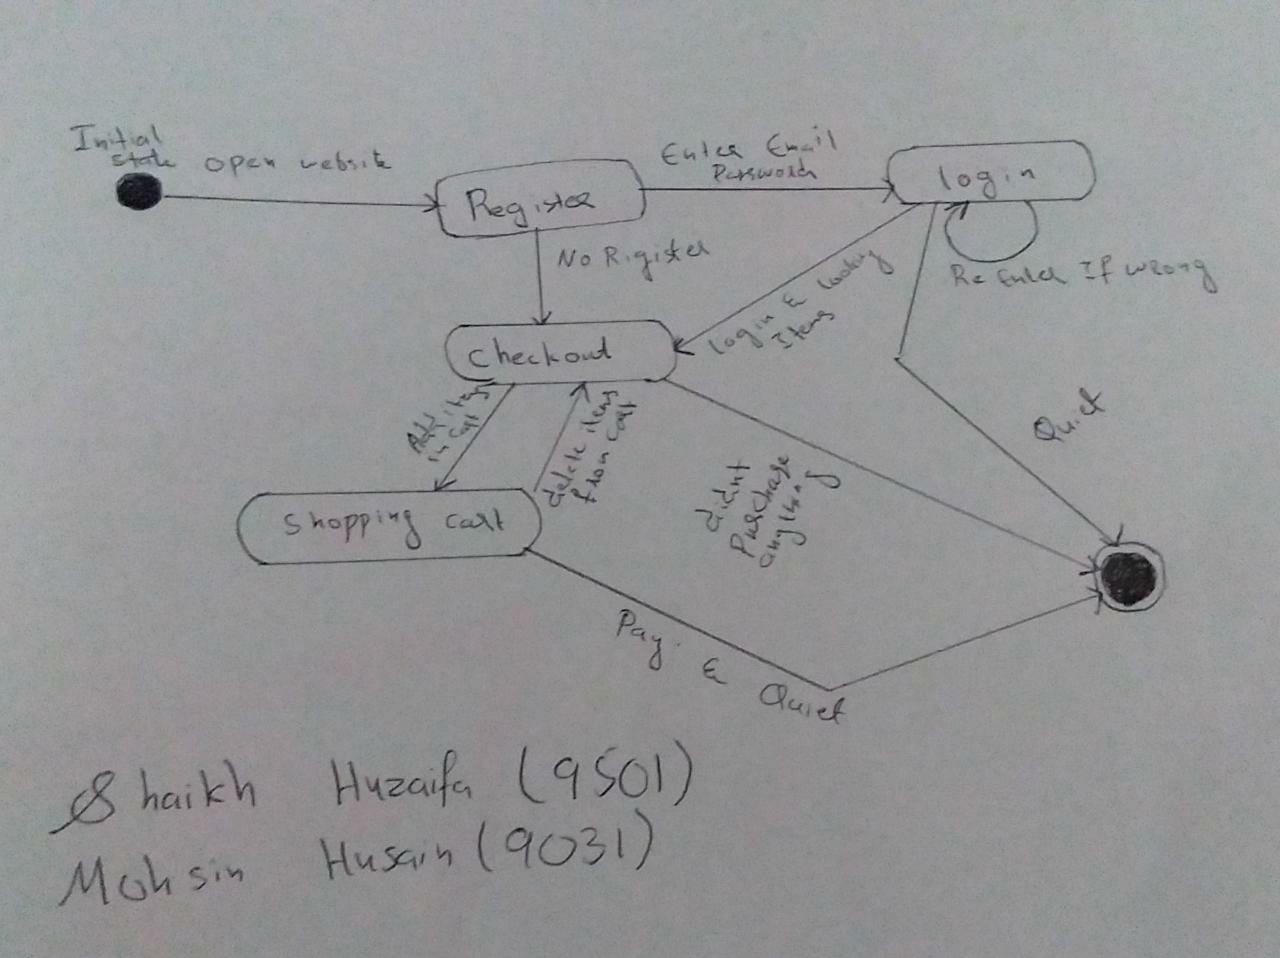 Initial
state
open website
Register
Enter Email
Password
login
No Rigister
Re Enter If wrong
login & looking
Items
checkout
Add items
in cart
delete items
from cart
Quiet
didnt
Purchase
anything
Shopping cart
Pay & Quiet
Shaikh Huzaifa (9501)
Mohsin Husain (9031)